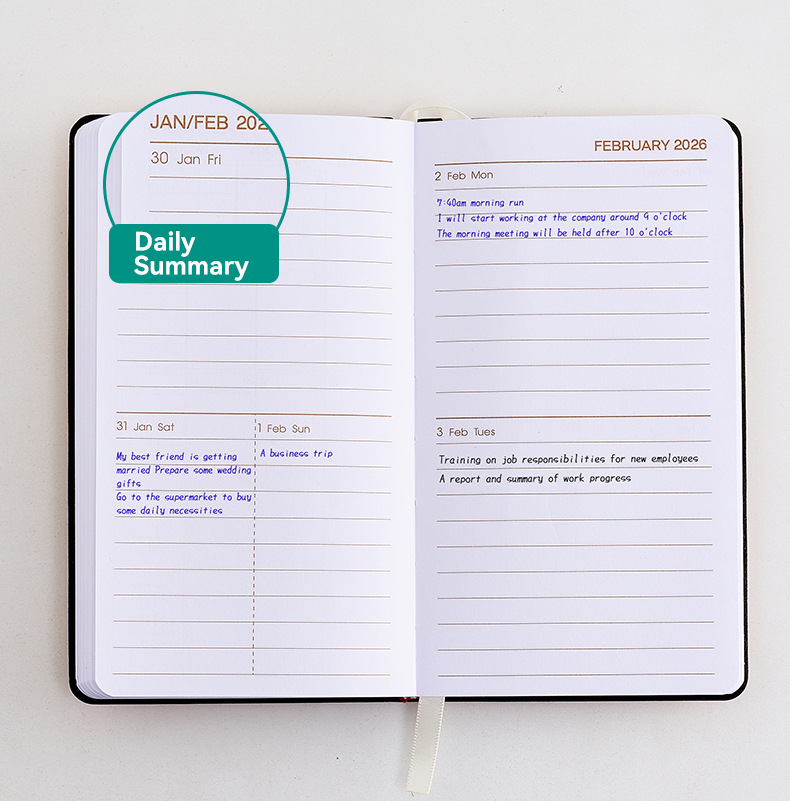 JAN/FEB 202
30 Jan Fri
Daily
Summary
31 Jan Sat
My best friend is getting
married Prepare some wedding
gifts
Go to the supermarket to buy
some daily necessities
1 Feb Sun
A business trip
FEBRUARY 2026
2 Feb Mon
7:40am morning run
I will start working at the company around 9 o'clock
The morning meeting will be held after 10 o'clock
3 Feb Tues
Training on job responsibilities for new employees
A report and summary of work progress